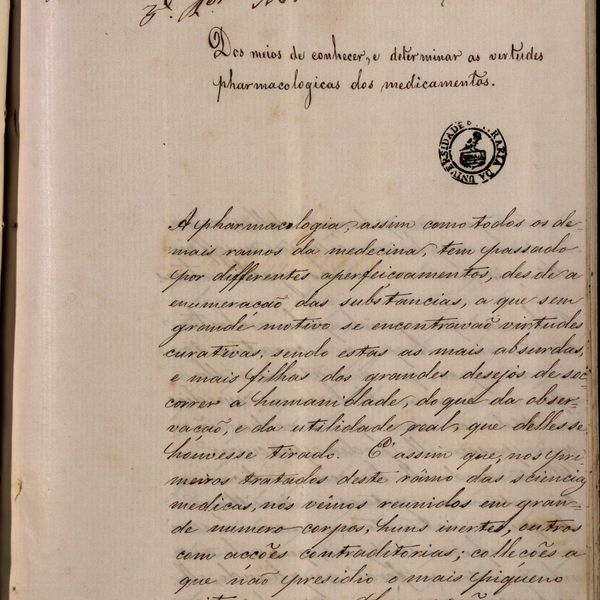 Dos meios de conhecer, e determinar as vertudes
pharmacologicas dos medicamentos.
UNIVERSIDADE
A pharmacologia, assim como todos os de-
mais ramos da medecina, tem passado
por differentes aperfeicoamentos, desde a
enumeração das substancias, a que sem
grande motivo se encontravaõ virtudes
curativas, sendo estas as mais absurdas,
e mais filhas dos grandes desejos de soc-
correr a humanidade, do que da obser-
vação, e da utilidade real, que delles se
houvesse tirado. E' assim que, nos pri-
meiros tratados deste râmo das sciencias
medicas, nós vêmos reunidos em gran-
de numero corpos, huns inertes, outros
com acções contraditorias; colleções a
que não presidio o mais piqueno